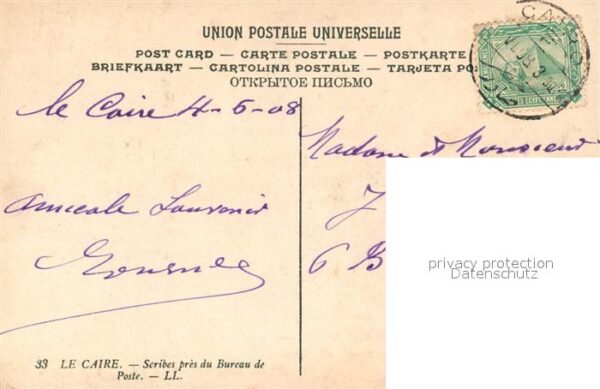 UNION POSTALE UNIVERSELLE
POST CARD — CARTE POSTALE — POSTKARTE
BRIEFKAART — CARTOLINA POSTALE — TARJETA PO
ОТКРЫТОЕ ПИСЬМО
CAIRO
le Caire 4-6-08
Madame et Monsieur
Amicale Souvenir
J
6 B
privacy protection
Datenschutz
33 LE CAIRE. — Scribes près du Bureau de
Poste. — LL.